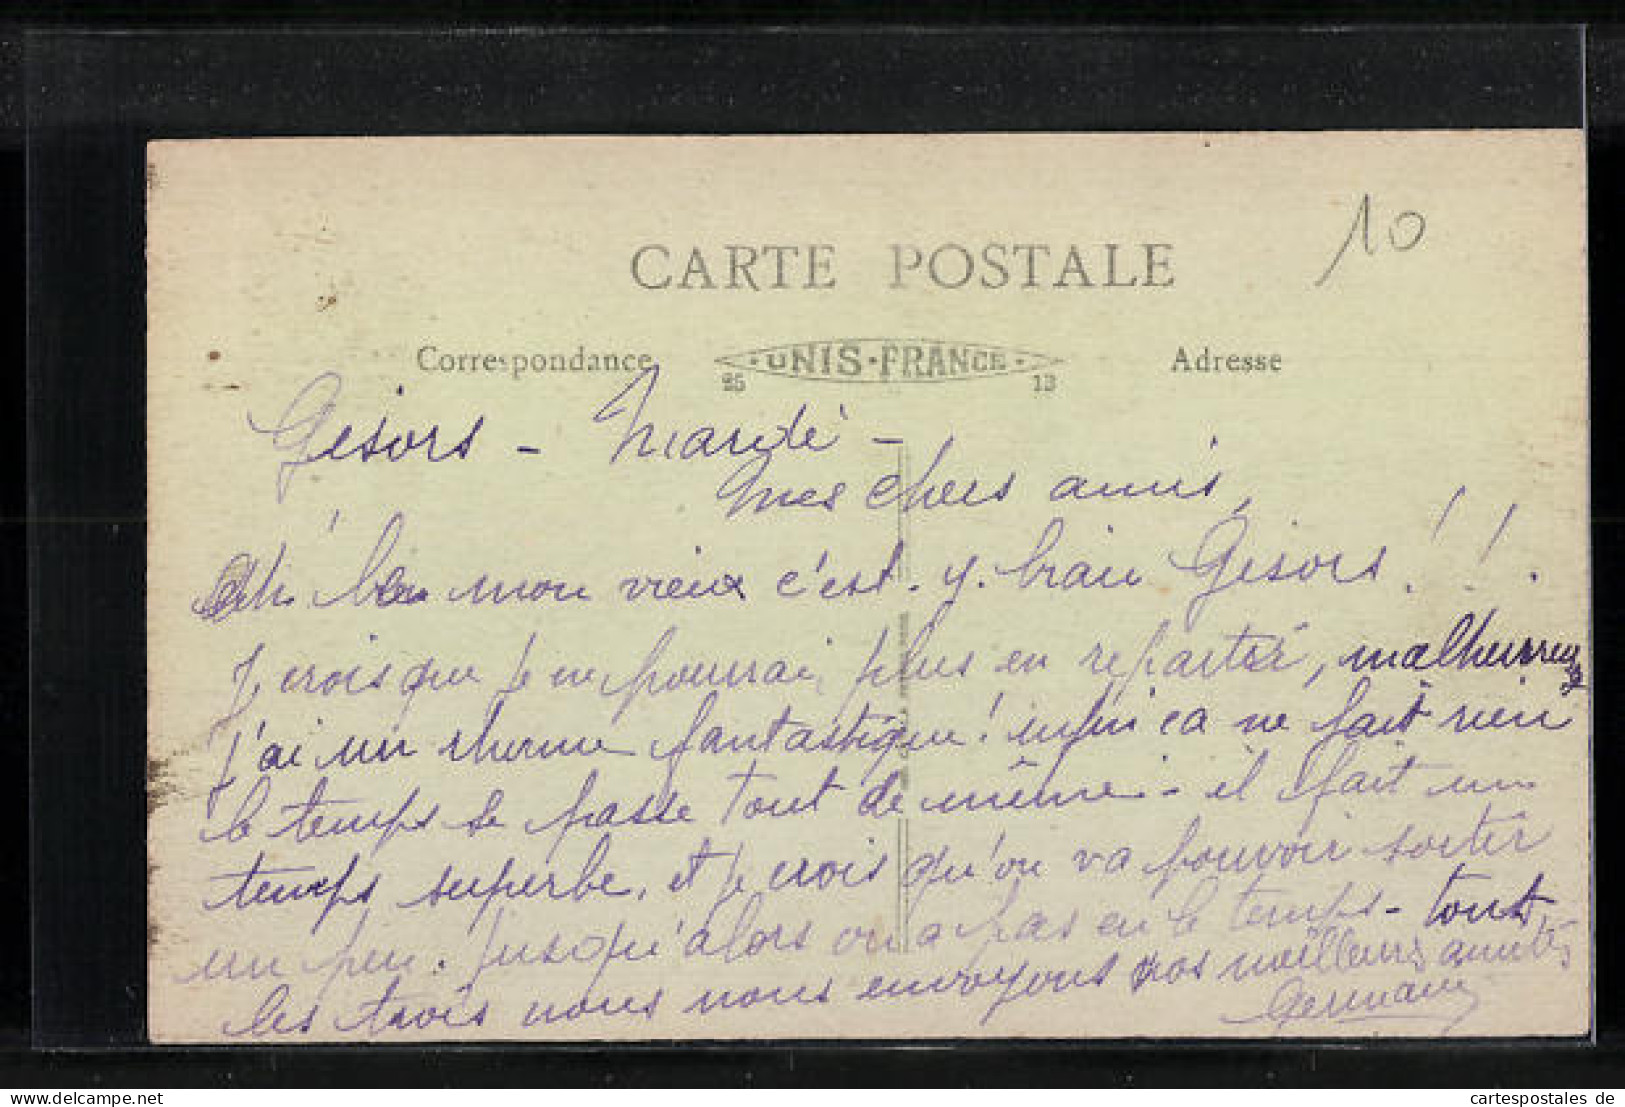 10
CARTE POSTALE
Correspondance UNIS-FRANCE Adresse
25 13
Gisors - Mardi -
Mes chers amis,
Ah ben mon vieux c'est-y-biau Gisors!!!
Je crois que je ne pourrai plus en repartir, malheureux
j'ai un rhume fantastique! enfin ca ne fait rien
le temps se passe tout de même - il fait un
temps superbe, et je crois qu'on va pouvoir sortir
un peu. Jusqu'alors on a pas eu le temps - tout
les trois nous nous envoyons nos meilleurs amitiés
Germain
www.delcampe.net cartespostales de